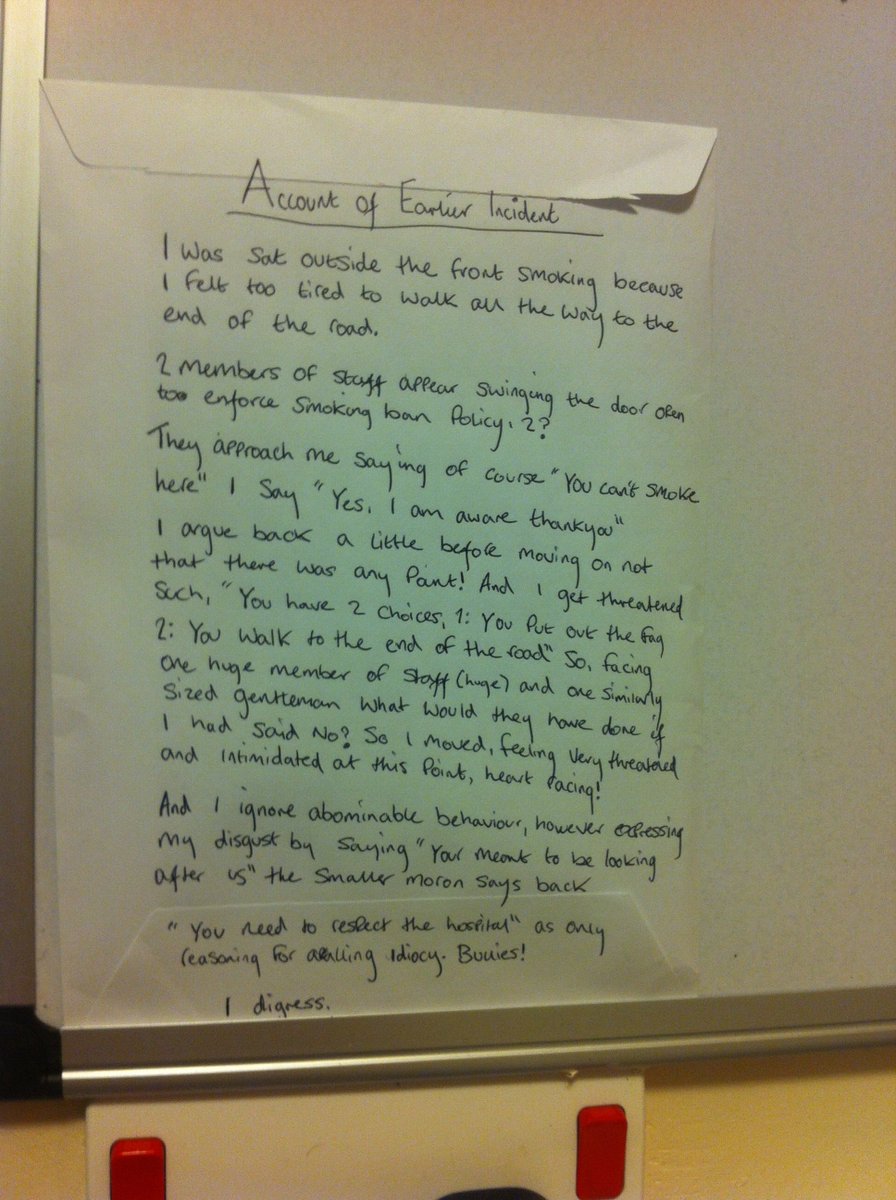 Account of Earlier Incident
I was sat outside the front smoking because
I felt too tired to walk all the way to the
end of the road.
2 members of staff appear swinging the door open
too enforce smoking ban Policy. 2?
They approach me saying of course "You can't smoke
here" I say "Yes, I am aware thankyou"
I argue back a little before moving on not
that there was any Point! And I get threatened
such, "You have 2 choices, 1: You Put out the fag
2: You walk to the end of the road" So, facing
one huge member of staff (huge) and one similarly
sized gentleman what would they have done if
I had said No? So I moved, feeling very threatened
and intimidated at this Point, heart racing!
And I ignore abominable behaviour, however expressing
my disgust by saying "Your meant to be looking
after us" the smaller moron says back
"You need to respect the hospital" as only
reasoning for apalling Idiocy. Bullies!
I digress.